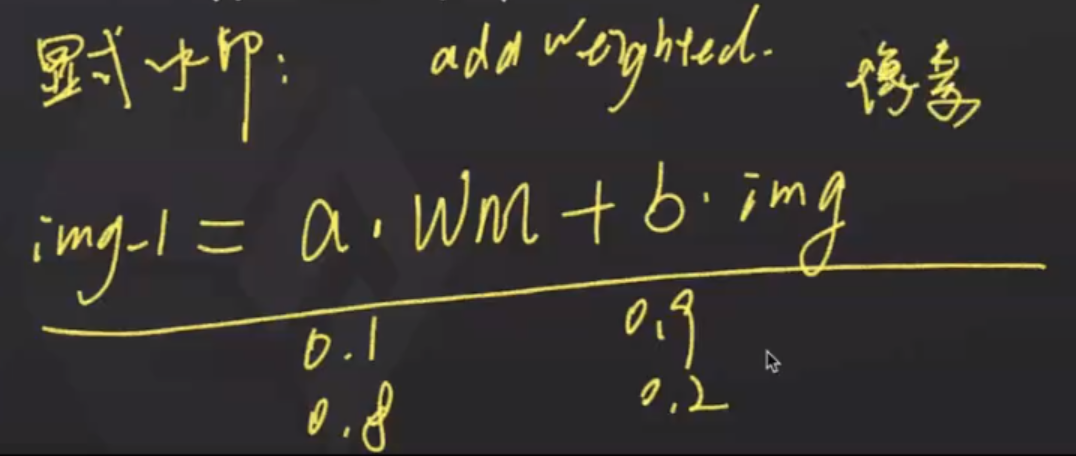 显式水印: add weighted. 像素
img_1 = a · WM + b · img
0.1 0.9
0.8 0.2